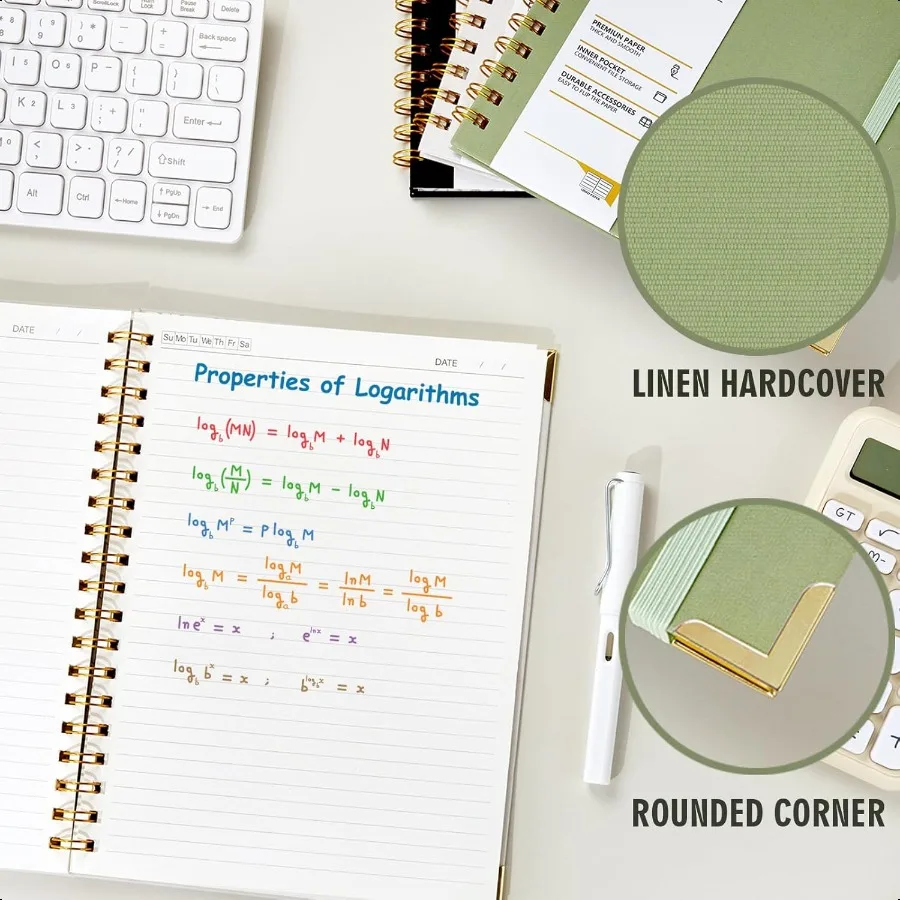 ScrollLock
Num Lock
Pause Break
Delete
8
9
( 9
) 0
_ -
+ =
Back space
I 5
O 6
P -
{ [
} ]
K 2
L 3
: ;
" '
Enter
0
< ,
> .
? /
Shift
Alt
Ctrl
Home
PgUp
PgDn
End
PREMIUN PAPER
THICK AND SMOOTH
INNER POCKET
CONVENIENT FILE STORAGE
DURABLE ACCESSORIES
EASY TO FLIP THE PAPER
LINEN HARDCOVER
DATE / /
Su Mo Tu We Th Fr Sa
DATE / /
Properties of Logarithms
log_b(MN) = log_b M + log_b N
log_b(M/N) = log_b M - log_b N
log_b M^p = p log_b M
log_b M = log_a M / log_a b = ln M / ln b = log M / log b
ln e^x = x ; e^{ln x} = x
log_b b^x = x ; b^{log_b x} = x
GT
√
M-
7
ROUNDED CORNER